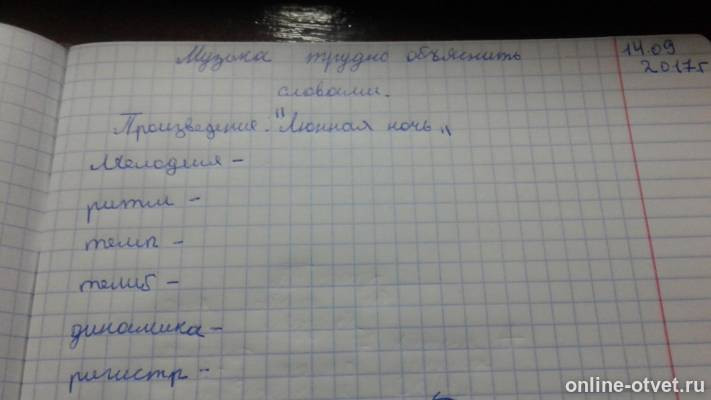 Музыка трудно объяснить
словами.
14.09
2017г
Произведения. "Люнная ночь"
Мелодия -
ритм -
темп -
тембр -
динамика -
регистр -
online-otvet.ru